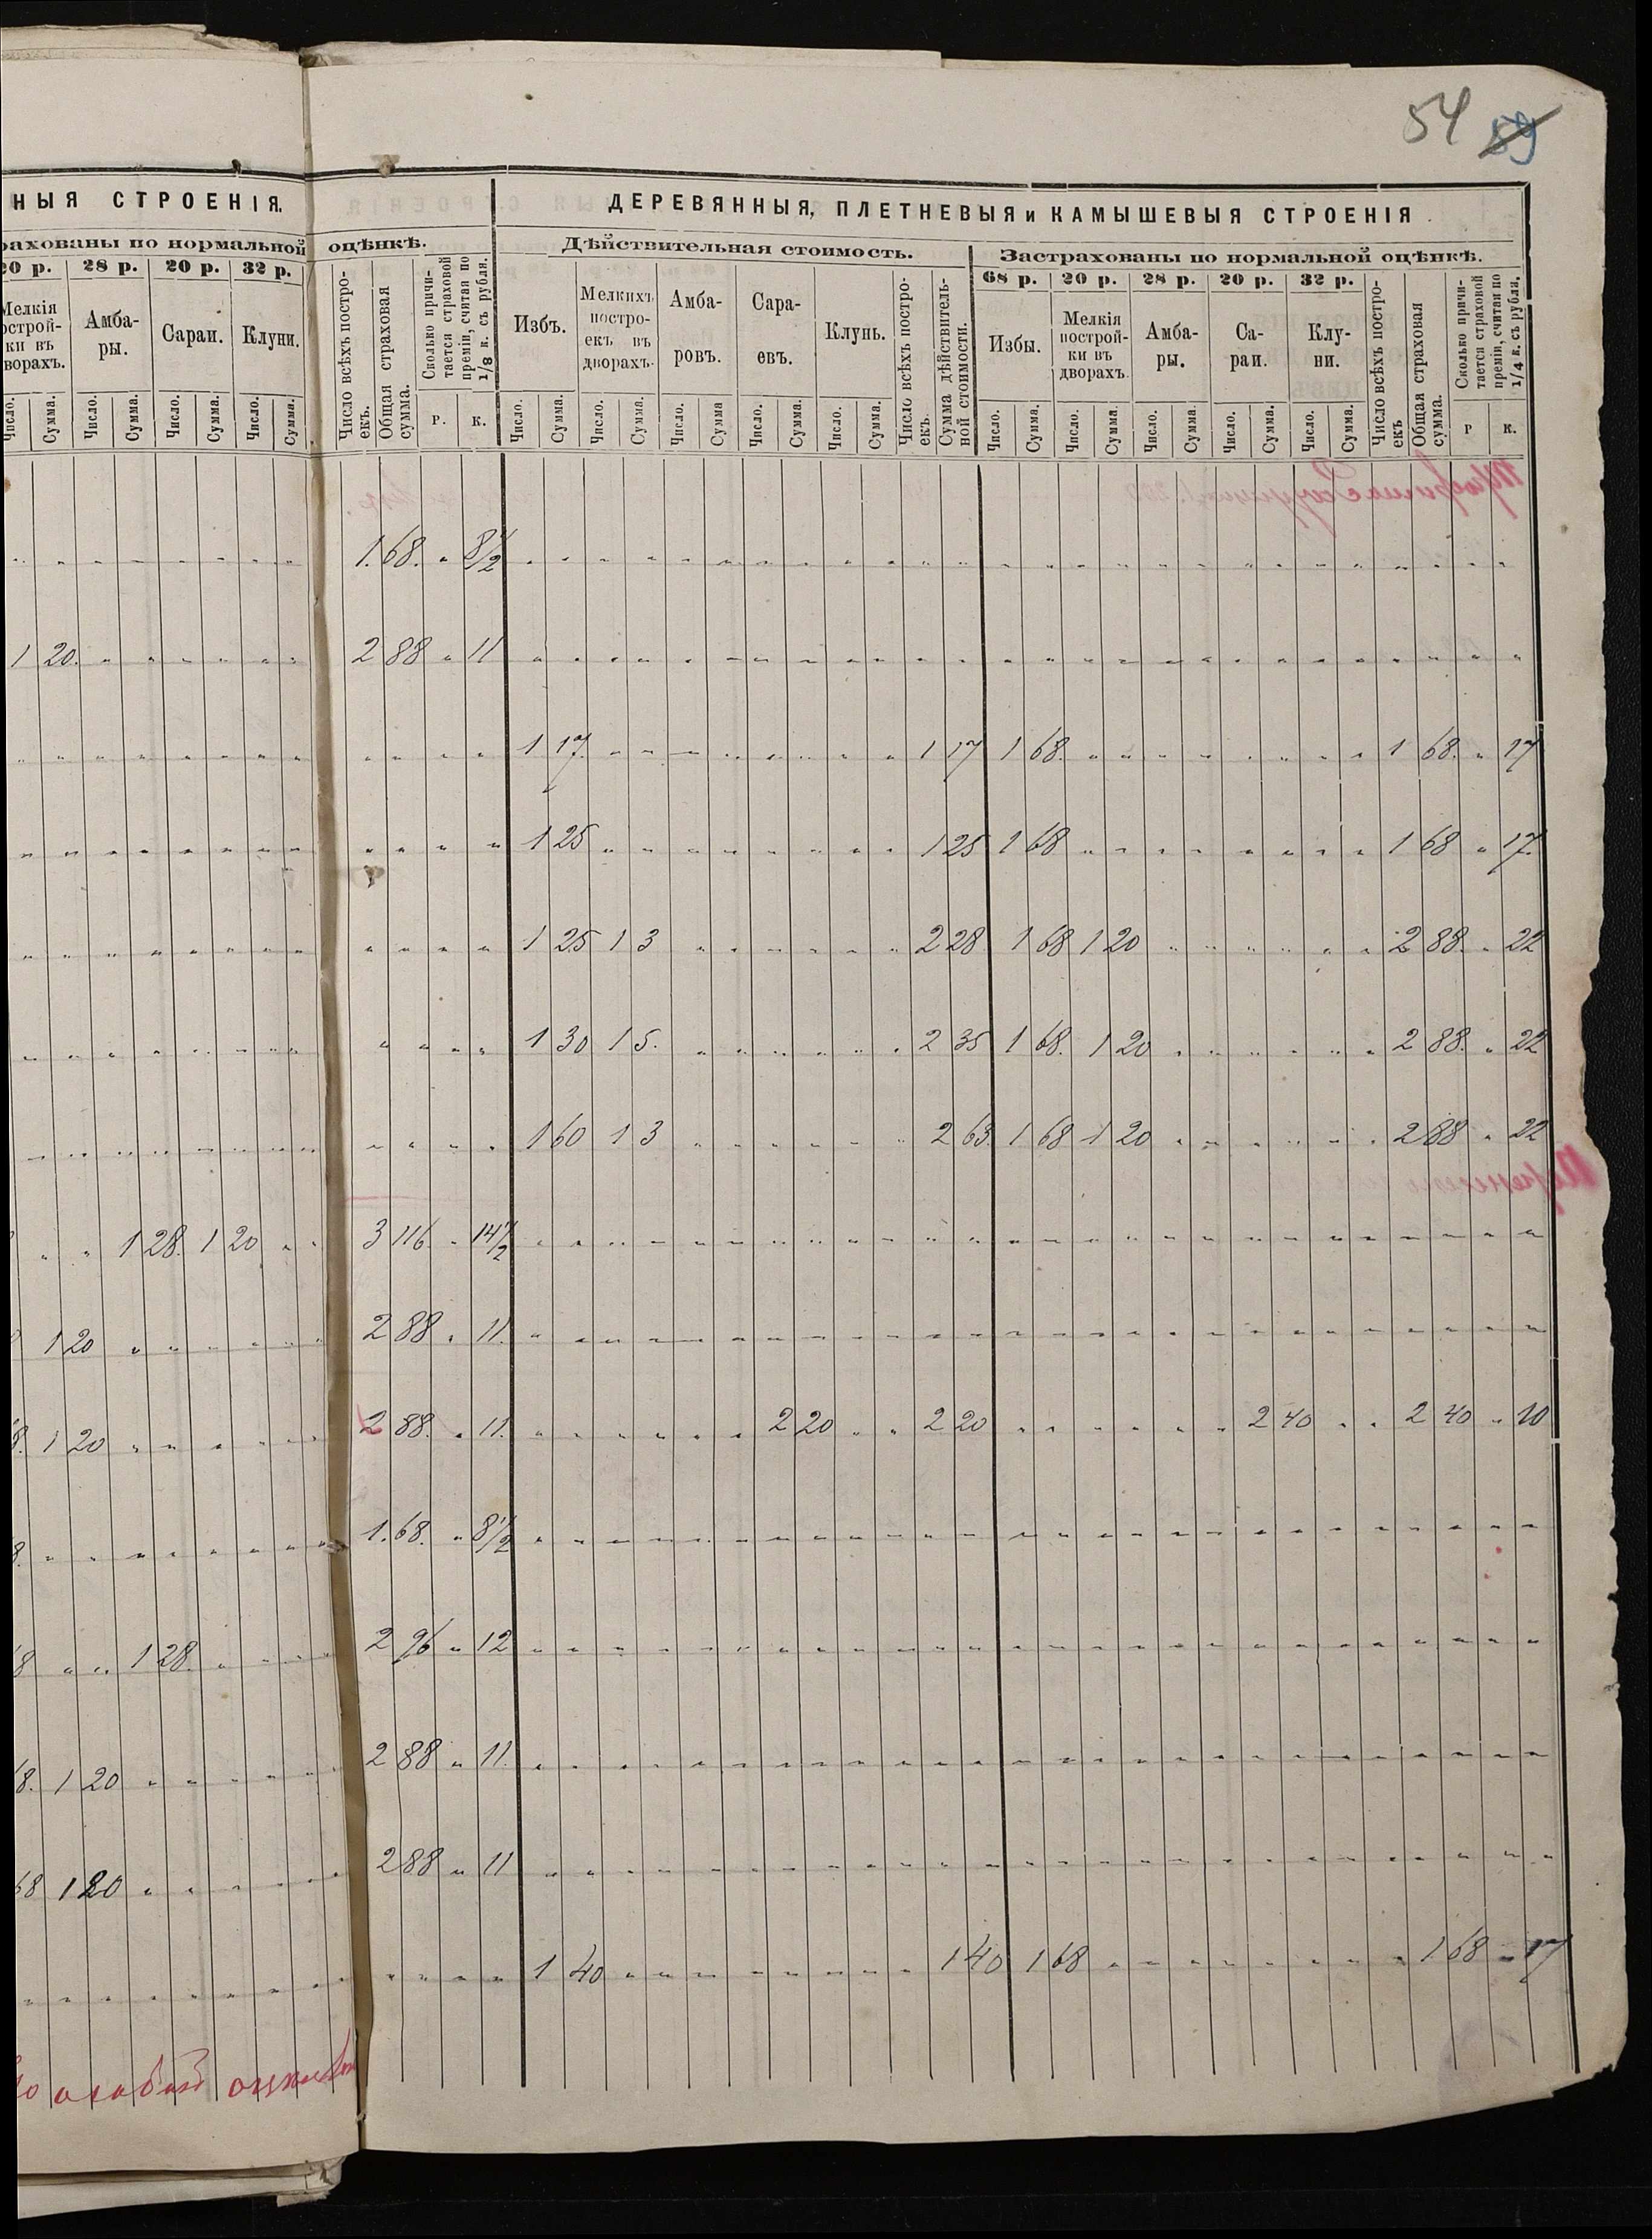 54 59
НЫЯ СТРОЕНІЯ.
ДЕРЕВЯННЫЯ, ПЛЕТНЕВЫЯ и КАМЫШЕВЫЯ СТРОЕНІЯ.
рахованы по нормальной оцѣнкѣ.
Дѣйствительная стоимость.
Застрахованы по нормальной оцѣнкѣ.
20 р. 28 р. 20 р. 32 р.
68 р. 20 р. 28 р. 20 р. 32 р.
Мелкія острой- ки въ ворахъ.
Амба- ры.
Сараи.
Клуни.
Число всѣхъ постро- екъ.
Общая страховая сумма.
Сколько причи- тается страховой преміи, считая по 1/8 к. съ рубля.
Избъ.
Мелкихъ постро- екъ въ дворахъ.
Амба- ровъ.
Сара- евъ.
Клунь.
Число всѣхъ постро- екъ.
Сумма дѣйствитель- ной стоимости.
Избы.
Мелкія построй- ки въ дворахъ.
Амба- ры.
Са- раи.
Клу- ни.
Число всѣхъ постро- екъ
Общая страховая сумма.
Сколько причи- тается страховой преміи, считая по 1/4 к. съ рубля.
Число. Сумма. Число. Сумма. Число. Сумма. Число. Сумма. Р. К. Число. Сумма. Число. Сумма. Число. Сумма Число. Сумма. Число. Сумма. Число. Сумма. Число. Сумма. Число. Сумма. Число. Сумма. Число. Сумма. Р К.
1. 68. " 8 1/2
1 20. 2 88 " 11
1 17. 1 17 1 68. 1 68. " 17
1 25 1 25 1 68 1 68 " 17.
1 25 1 3 2 28 1 68 1 20 2 88. " 22
1 30 1 5. 2 35 1 68. 1 20 2 88. " 22
1 60 1 3 2 63. 1 68 1 20 2 88 " 22
1 28. 1 20 3 116 " 14 1/2
1 20 2 88 " 11.
8. 1 20 2 88. " 11. 2 20 2 20 2 40 2 40 " 10
8. 1. 68. " 8 1/2
8 1 28. 2 96 " 12
8. 1 20 2 88 " 11.
68 1 20 2 88 " 11
1 40 1 40 1 68 1 68 " 17